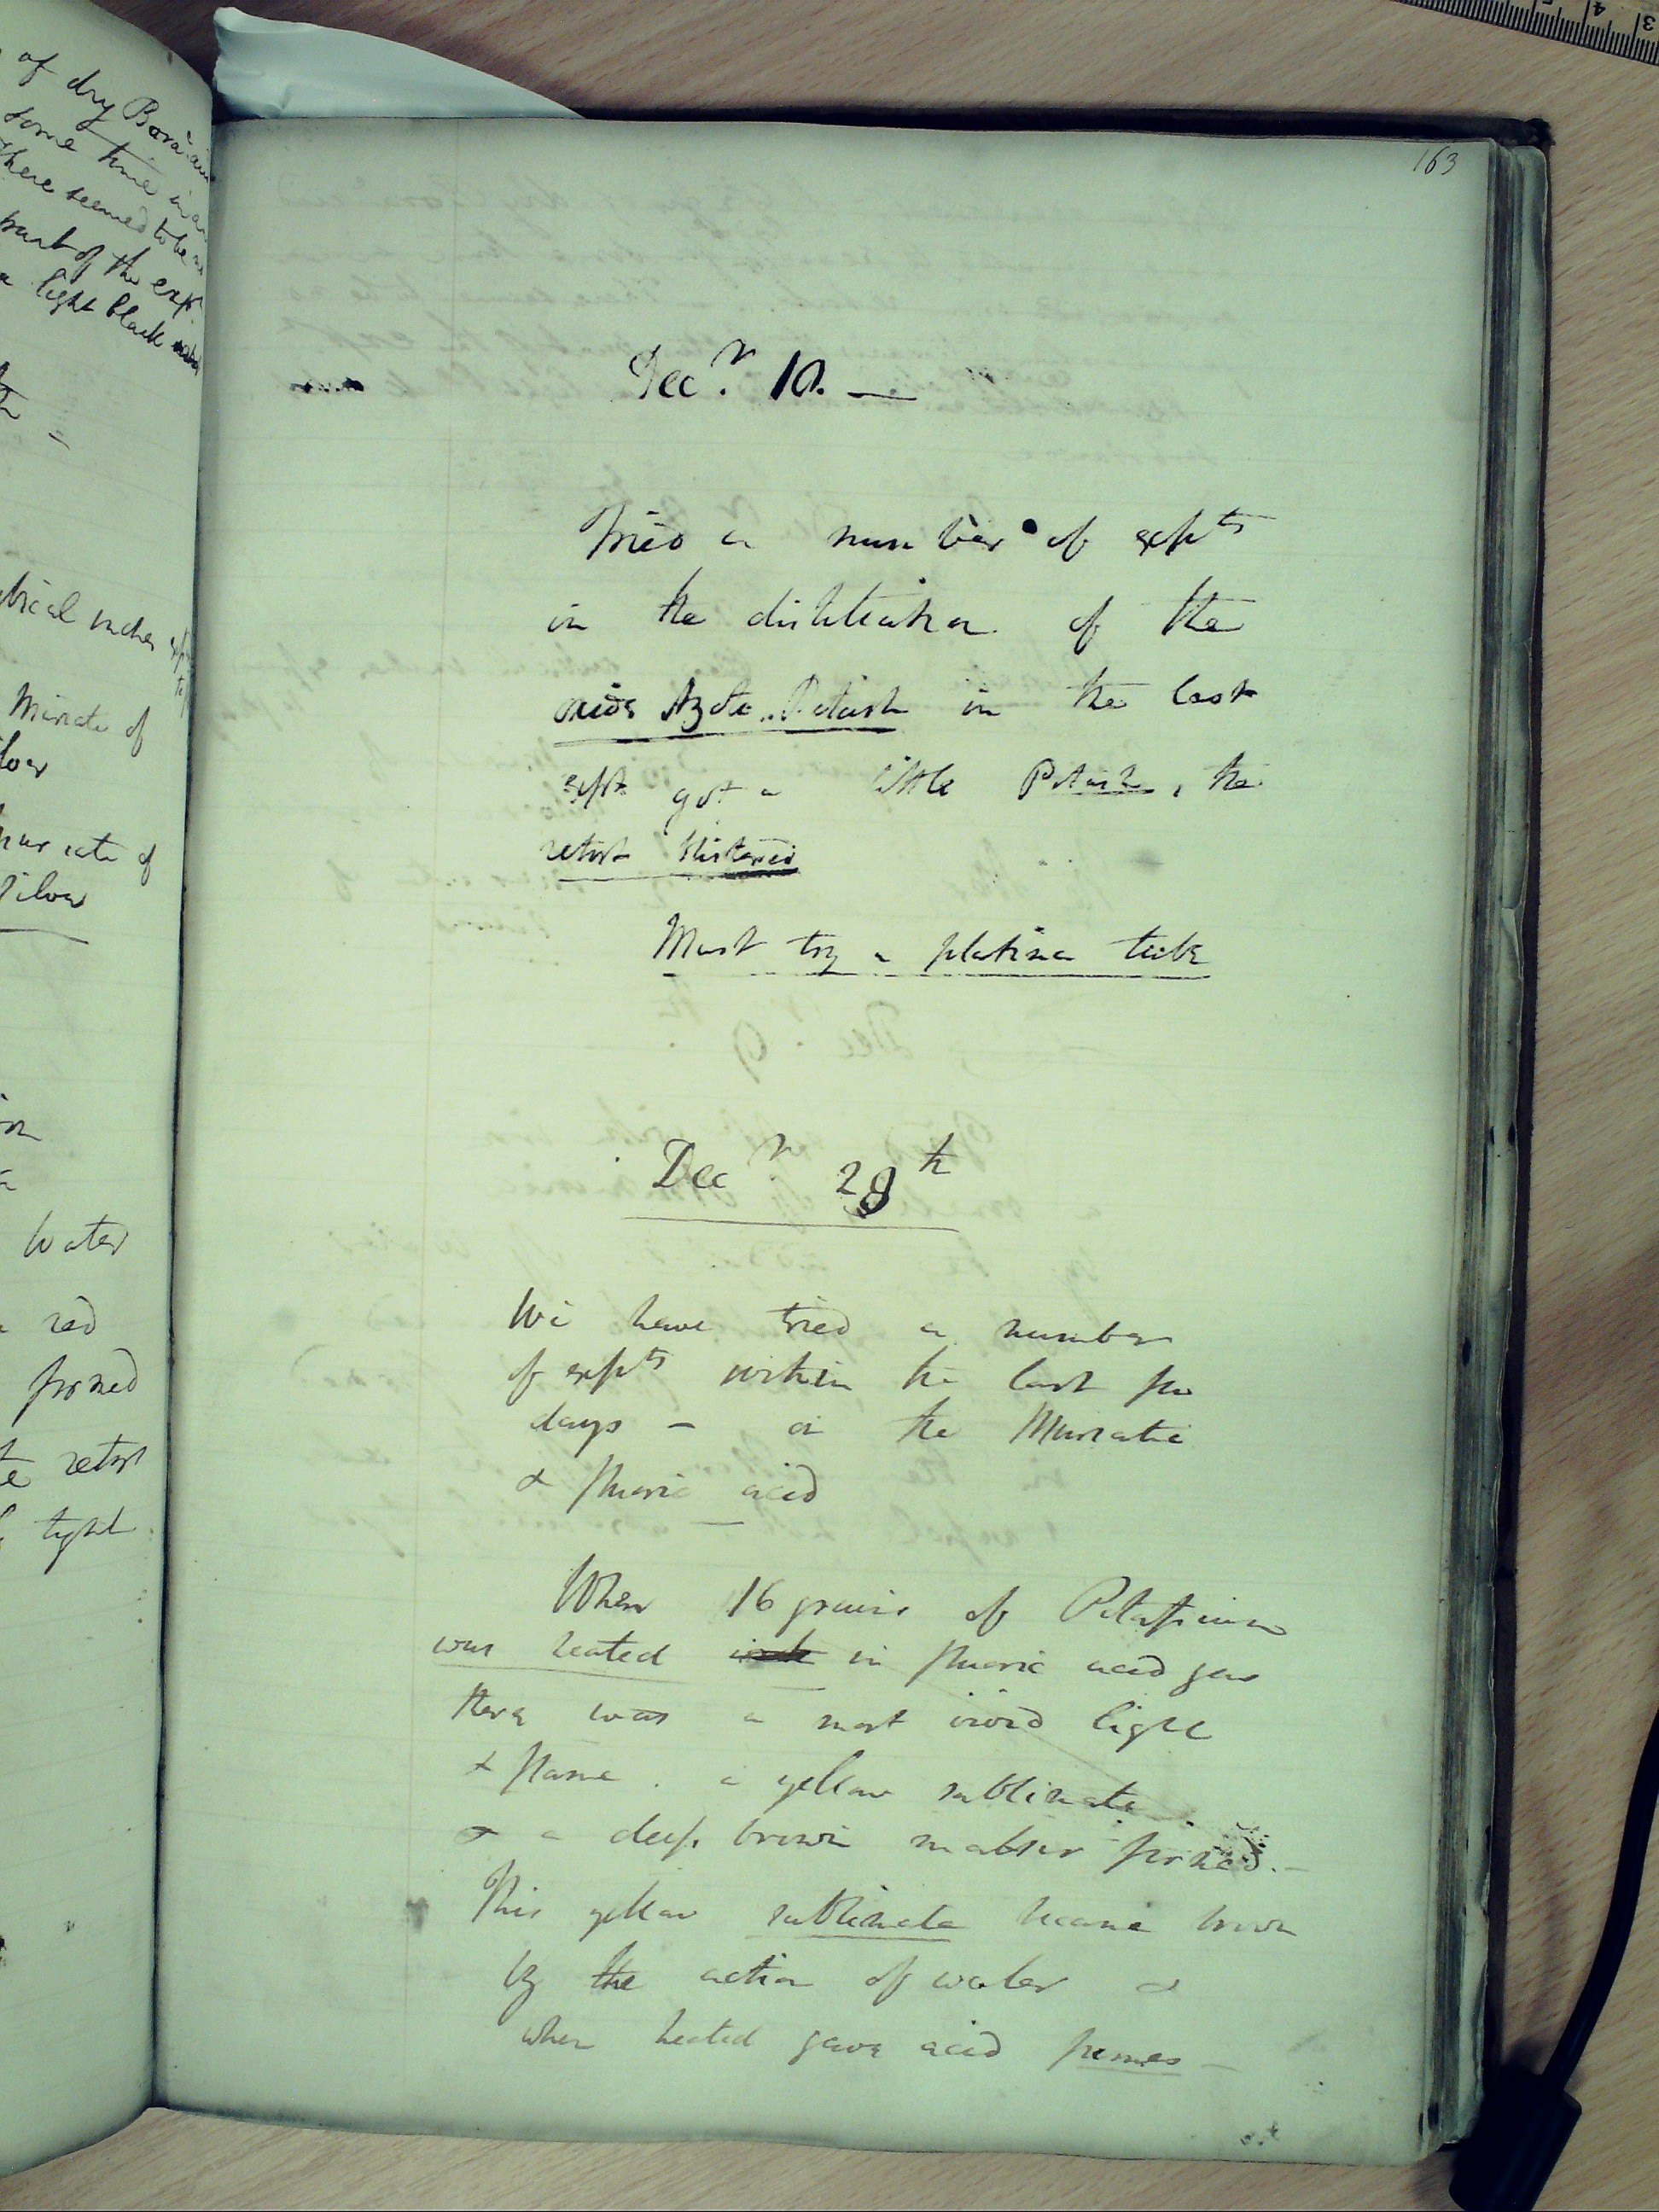 of dry Boracic
some time in an
there seemed to be no
part of the expt
a light black
cubical inches
Muriate of
muriate of
Silver
Water
red
formed
retort
tight
163
Decr. 10. —
Tried a number of expts
in the distillation of the
Azote Potash in the last
expt got a little Potash, the
retort blistered
Must try a platina tube
Decr. 28th
We have tried a number
of expts within the last few
days — on the Muriatic
& fluoric acid
When 16 grains of Potassium
was heated in fluoric acid gas
there was a most vivid light
& flame. a yellow sublimate
& a deep brown matter formed. —
This yellow sublimate became brown
by the action of water &
when heated gave acid fumes —
3
4
5